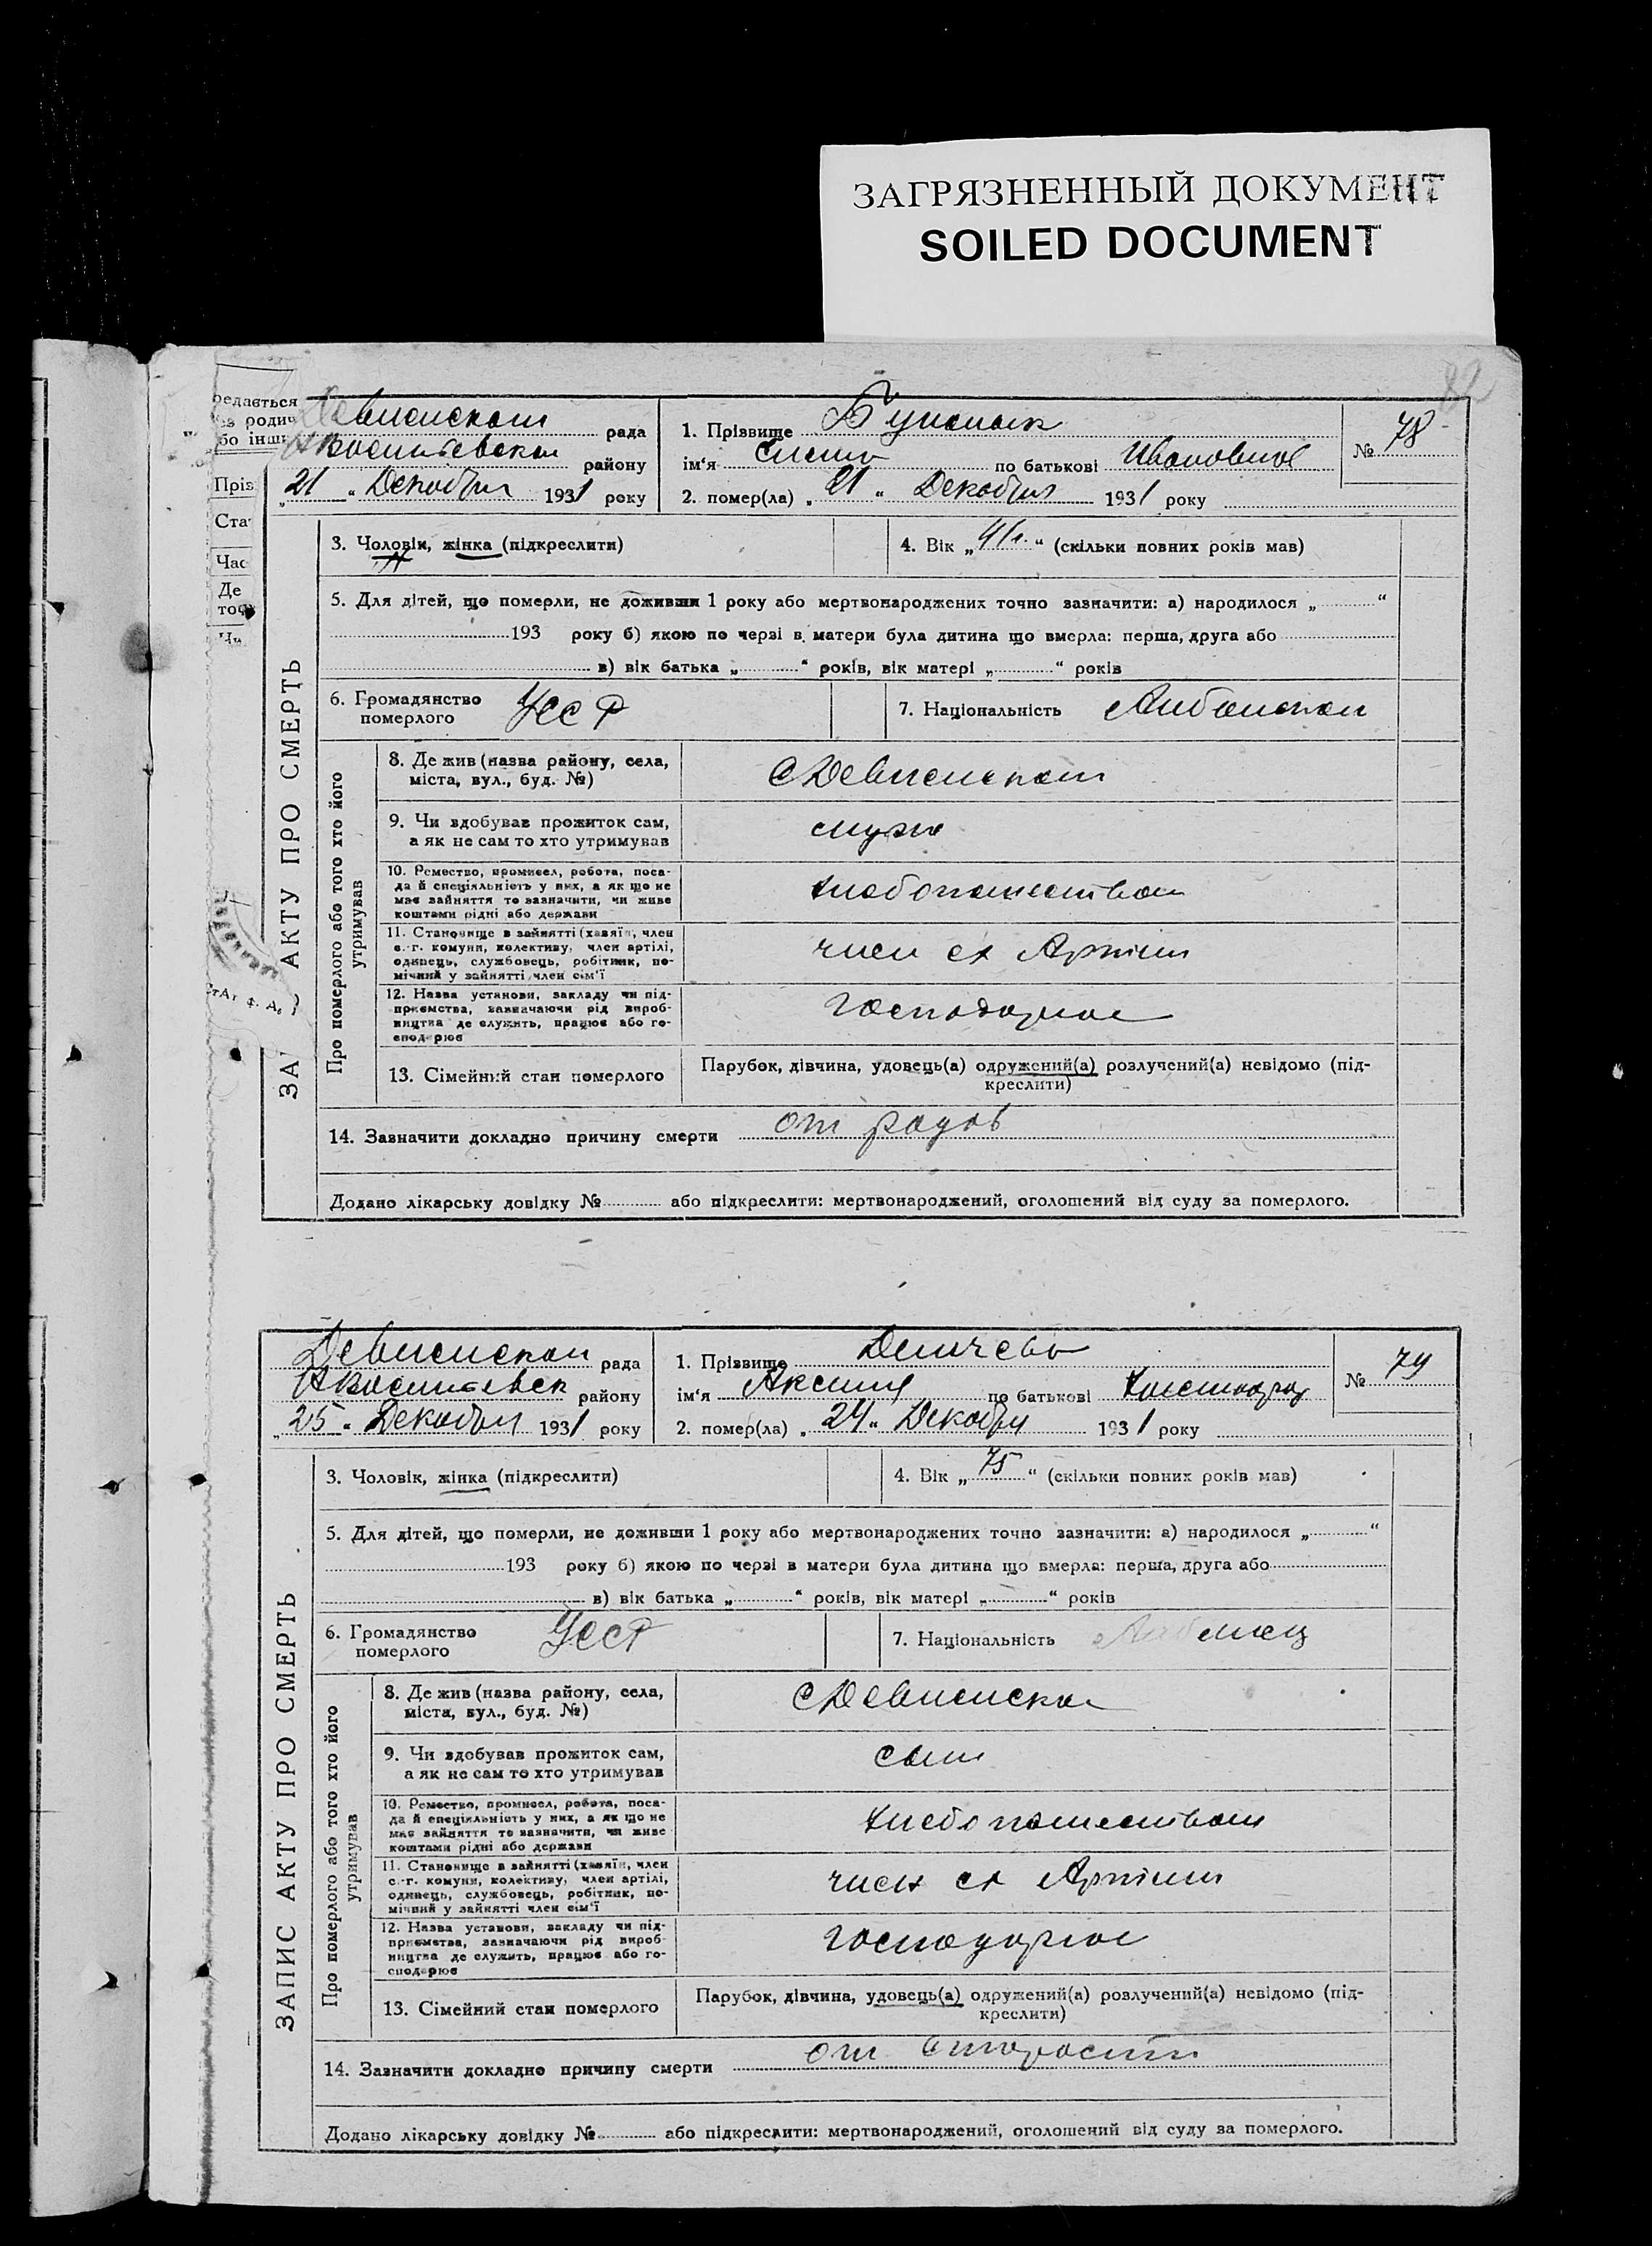 ЗАГРЯЗНЕННЫЙ ДОКУМЕНТ
SOILED DOCUMENT
82
редається
родич
бо інш
Пріз
Ста
Час
Де
ЗА АКТУ ПРО СМЕРТЬ
рада
району
21 " Декабря 1931 року
1. Прізвище
ім'я по батькові Ивановна
2. помер(ла) „ 21 " Декабря 1931 року
№ 78
3. Чоловік, жінка (підкреслити)
4. Вік „ 41 " (скільки повних років мав)
5. Для дітей, що померли, не доживши 1 року або мертвонароджених точно зазначити: а) народилося „ "
193 року б) якою по черзі в матери була дитина що вмерла: перша, друга або
в) вік батька „ " років, вік матері „ " років
6. Громадянство
померлого
УССР
7. Національність Албанская
Про померлого або того хто його
утримував
8. Де жив (назва району, села,
міста, вул., буд. №)
9. Чи здобував прожиток сам,
а як не сам то хто утримував
муж
10. Ремество, промисел, робота, поса-
да й спеціяльність у них, а як що не
має зайняття то зазначити, чи живе
коштами рідні або держави
хлебопашеством
11. Становище в зайнятті (хазяїн, член
с.-г. комуни, колективу, член артілі,
одинець, службовець, робітник, по-
мічний у зайнятті член сім'ї
член сх Артели
12. Назва установи, закладу чи під-
приємства, зазначаючи рід вироб-
ництва де служить, працює або го-
сподарює
13. Сімейний стан померлого
Парубок, дівчина, удовець(а) одружений(а) розлучений(а) невідомо (під-
креслити)
14. Зазначити докладно причину смерти от родов
Додано лікарську довідку № або підкреслити: мертвонароджений, оголошений від суду за померлого.
ЗАПИС АКТУ ПРО СМЕРТЬ
рада
району
„ 25 " Декабря 1931 року
1. Прізвище
ім'я по батькові
2. помер(ла) „ 24 " Декабря 1931 року
№ 79
3. Чоловік, жінка (підкреслити)
4. Вік „ 75 " (скільки повних років мав)
5. Для дітей, що померли, не доживши 1 року або мертвонароджених точно зазначити: а) народилося „ "
193 року б) якою по черзі в матери була дитина що вмерла: перша, друга або
в) вік батька „ " років, вік матері „ " років
6. Громадянство
померлого
УССР
7. Національність
Про померлого або того хто його
утримував
8. Де жив (назва району, села,
міста, вул., буд. №)
9. Чи здобував прожиток сам,
а як не сам то хто утримував
сын
10. Ремество, промисел, робота, поса-
да й спеціяльність у них, а як що не
має зайняття то зазначити, чи живе
коштами рідні або держави
хлебопашеством
11. Становище в зайнятті (хазяїн, член
с.-г. комуни, колективу, член артілі,
одинець, службовець, робітник, по-
мічний у зайнятті член сім'ї
член сх Артели
12. Назва установи, закладу чи під-
приємства, зазначаючи рід вироб-
ництва де служить, працює або го-
сподарює
13. Сімейний стан померлого
Парубок, дівчина, удовець(а) одружений(а) розлучений(а) невідомо (під-
креслити)
14. Зазначити докладно причину смерти от старости
Додано лікарську довідку № або підкреслити: мертвонароджений, оголошений від суду за померлого.